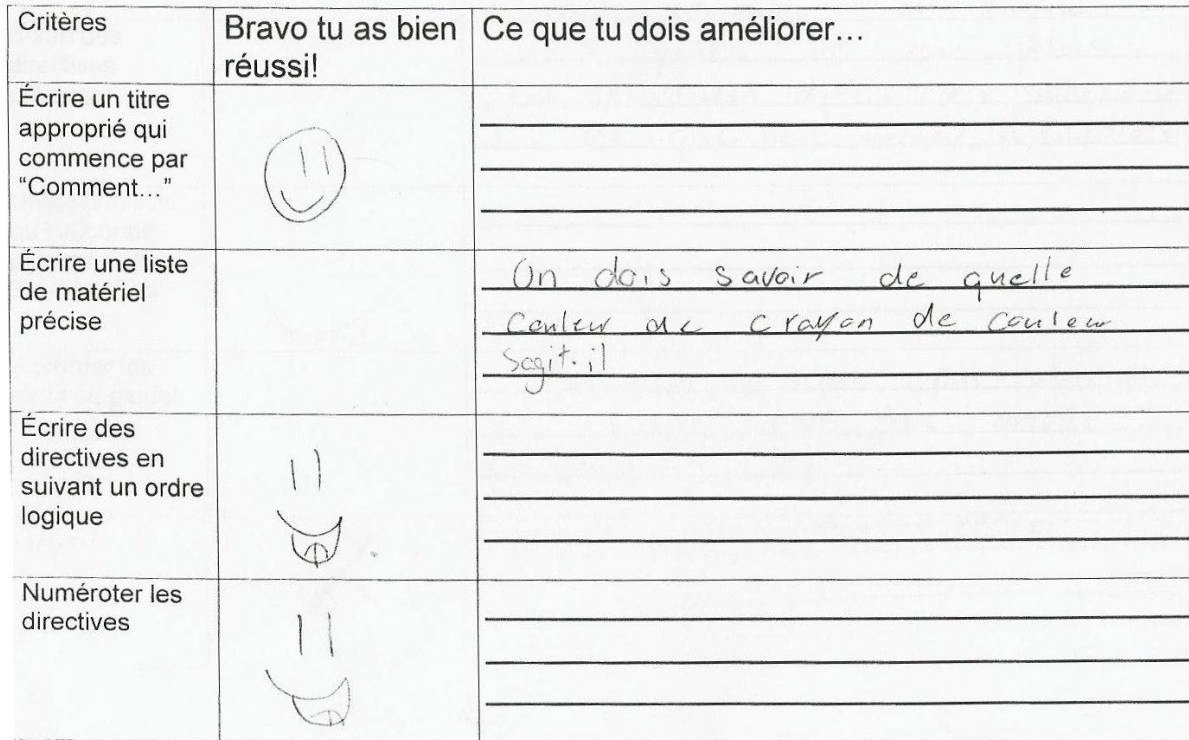 Critères
Bravo tu as bien
réussi!
Ce que tu dois améliorer…
Écrire un titre
approprié qui
commence par
“Comment...”
Écrire une liste
de matériel
précise
On dois savoir de quelle
Couleur de crayon de couleur
Sagit-il
Écrire des
directives en
suivant un ordre
logique
Numéroter les
directives